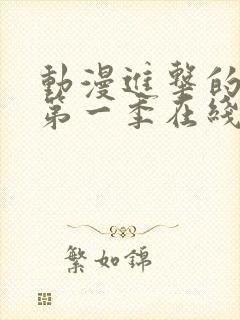 動漫進擊的
第一季在綫
繁如錦